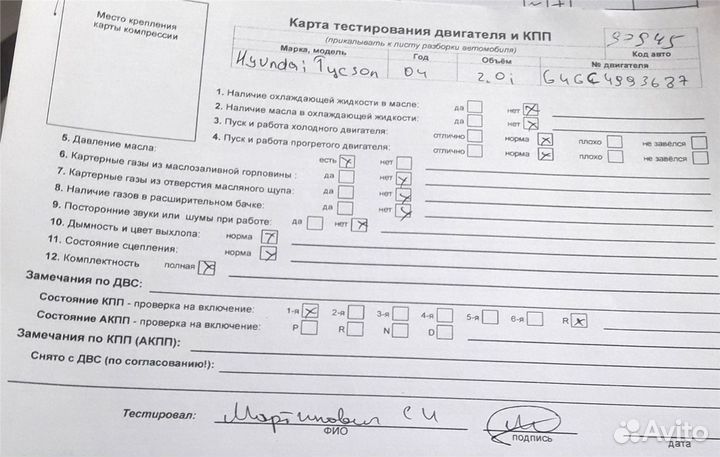 Место крепления
карты компрессии
Карта тестирования двигателя и КПП
(прикалывать к листу разборки автомобиля)
Код авто
Марка, модель Год Объём № двигателя
Hyundai Tycson 04 2.0i G4GC4993637
1. Наличие охлаждающей жидкости в масле: да нет
2. Наличие масла в охлаждающей жидкости: да нет
3. Пуск и работа холодного двигателя: отлично норма плохо не завёлся
4. Пуск и работа прогретого двигателя: отлично норма плохо не завёлся
5. Давление масла: есть нет
6. Картерные газы из маслозаливной горловины : да нет
7. Картерные газы из отверстия масляного щупа: да нет
8. Наличие газов в расширительном бачке: да нет
9. Посторонние звуки или шумы при работе: да нет
10. Дымность и цвет выхлопа: норма
11. Состояние сцепления: норма
12. Комплектность полная
Замечания по ДВС:
Состояние КПП - проверка на включение: 1-я 2-я 3-я 4-я 5-я 6-я R
Состояние АКПП - проверка на включение: P R N D
Замечания по КПП (АКПП):
Снято с ДВС (по согласованию!):
Тестировал: Мартинович С И
ФИО подпись дата
Avito